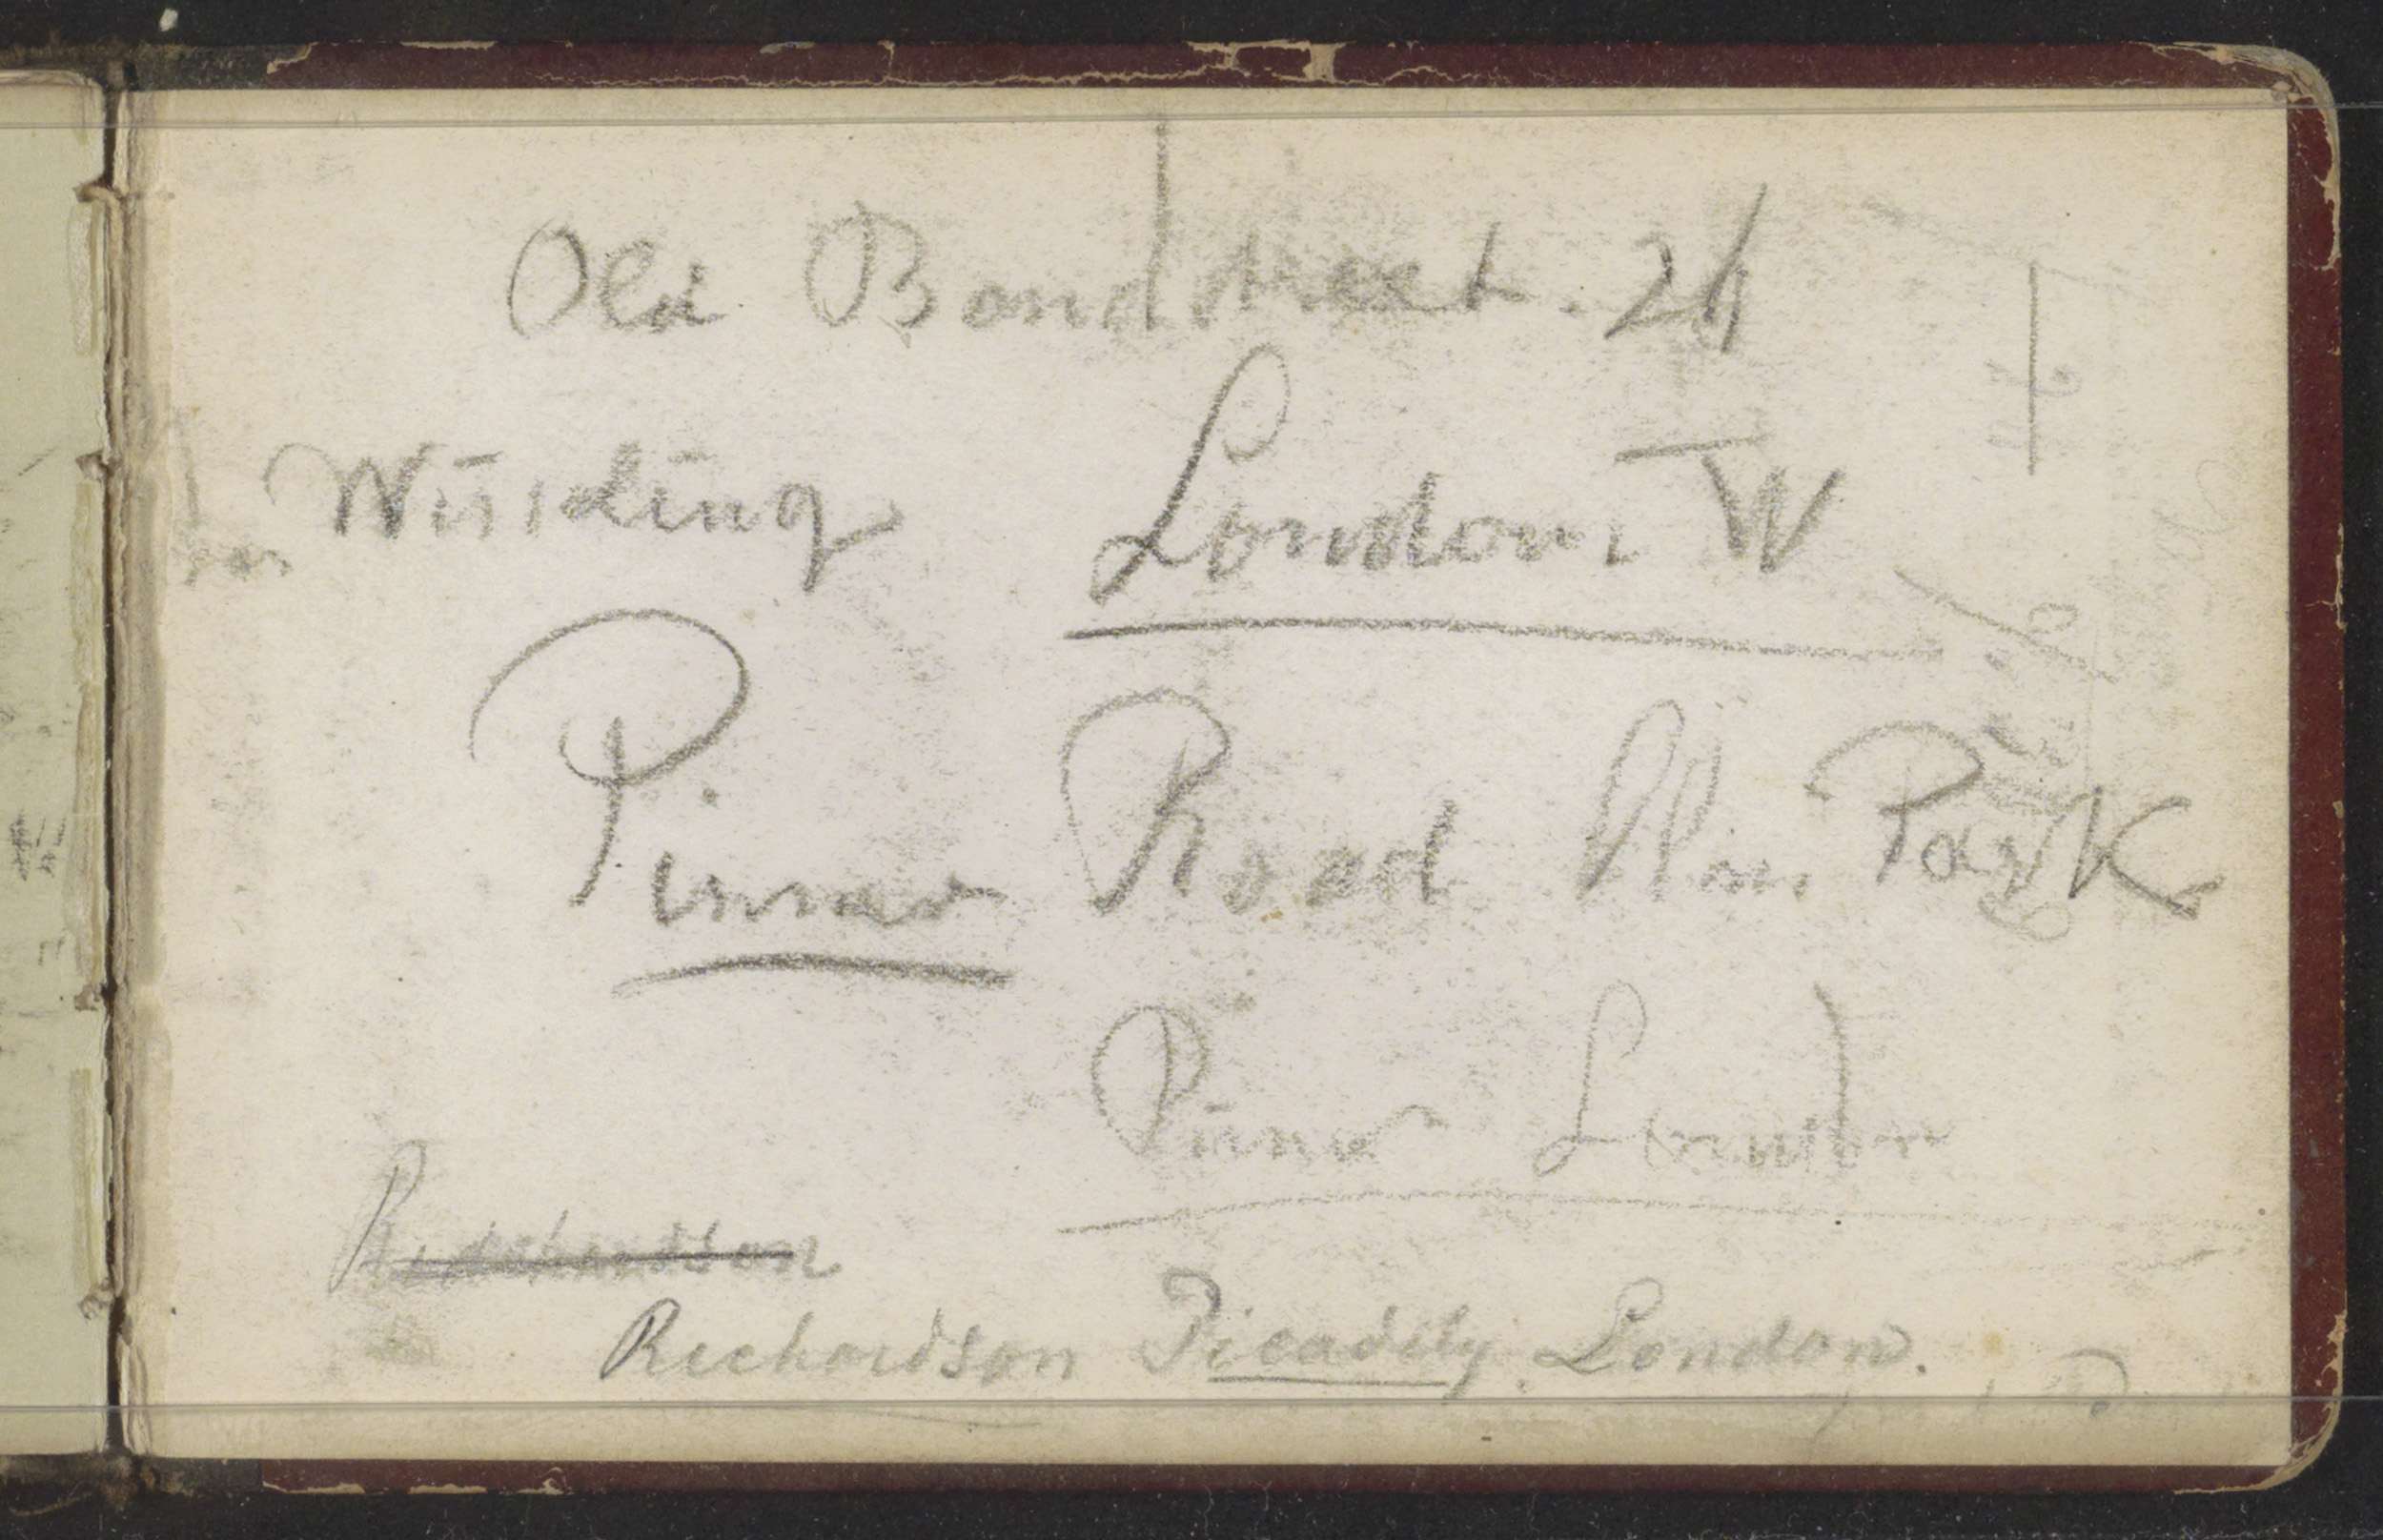 Old Bondstreet. 26
London W
Pinner Road Park
Pinner London
Richardson
Richardson Picadily. London.